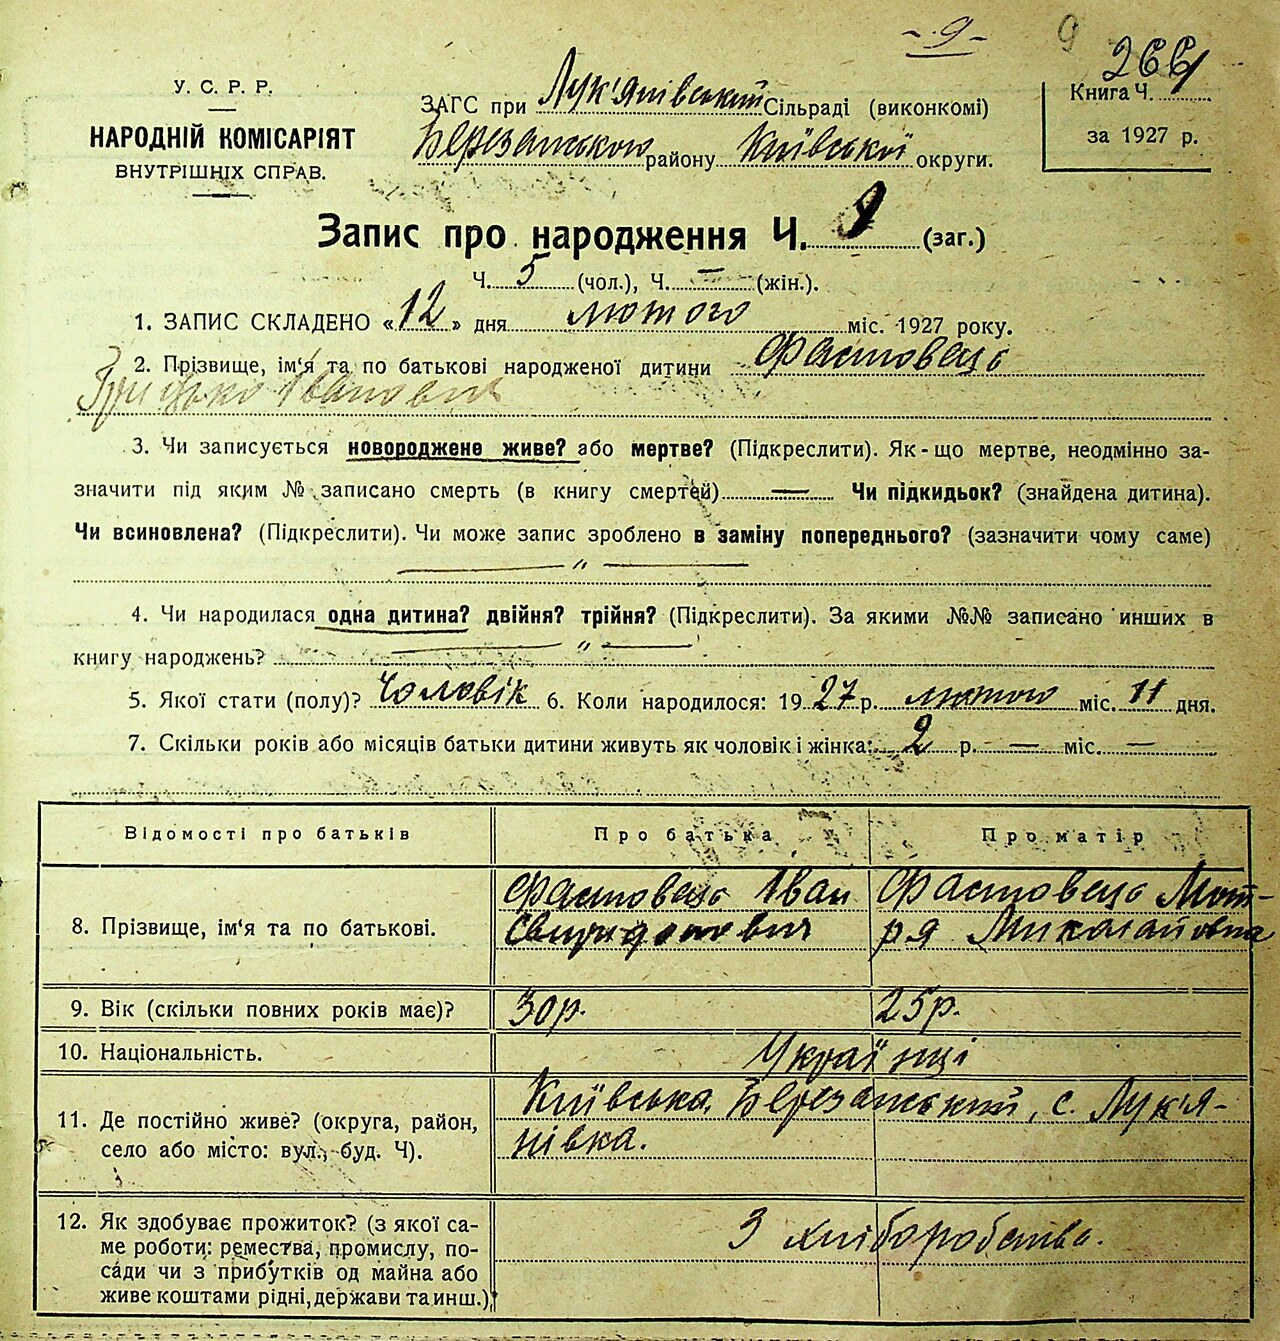 - 9 -
9
266
У. С. Р. Р.
НАРОДНІЙ КОМІСАРІЯТ
ВНУТРІШНІХ СПРАВ.
ЗАГС при Лук'янівський Сільраді (виконкомі)
Березанського району Київської округи.
Книга Ч.
за 1927 р.
Запис про народження Ч. 9 (заг.)
Ч. 5 (чол.), Ч. — (жін.).
1. ЗАПИС СКЛАДЕНО «12» дня лютого міс. 1927 року.
2. Прізвище, ім'я та по батькові народженої дитини Фастовець
Грицько Іванович
3. Чи записується новороджене живе? або мертве? (Підкреслити). Як-що мертве, неодмінно за-
значити під яким № записано смерть (в книгу смертей) — Чи підкидьок? (знайдена дитина).
Чи всиновлена? (Підкреслити). Чи може запис зроблено в заміну попереднього? (зазначити чому саме)
— „ —
4. Чи народилася одна дитина? двійня? трійня? (Підкреслити). За якими №№ записано инших в
книгу народжень? — „ —
5. Якої стати (полу)? Чоловік 6. Коли народилося: 1927 р. лютого міс. 11 дня.
7. Скільки років або місяців батьки дитини живуть як чоловік і жінка: 2 р. — міс. —
Відомості про батьків Про батька Про матір
8. Прізвище, ім'я та по батькові. Фастовець Іван Свиридонович Фастовець Мотря Миколаївна
9. Вік (скільки повних років має)? 30р. 25р.
10. Національність. Українці
11. Де постійно живе? (округа, район, Київська, Березанський, с. Лук'я-
село або місто: вул., буд. Ч). нівка.
12. Як здобуває прожиток? (з якої са- З хліборобства.
ме роботи: ремества, промислу, по-
сади чи з прибутків од майна або
живе коштами рідні, держави та инш.)